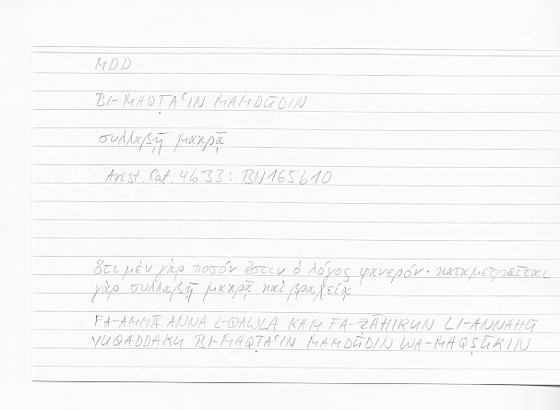 MDD
BI-MAQṬAʿIN MAMDŪDIN
συλλαβῇ μακρᾷ
Arist. Cat. 4b33: BN165b10
ὅτι μὲν γὰρ ποσόν ἐστιν ὁ λόγος φανερόν· καταμετρεῖται
γὰρ συλλαβῇ μακρᾷ καὶ βραχείᾳ
FA-AMMĀ ANNA L-QAWLA KAM FA-ẒĀHIRUN LI-ANNAHŪ
YUQADDARU BI-MAQṬAʿIN MAMDŪDIN WA-MAQṢŪRIN